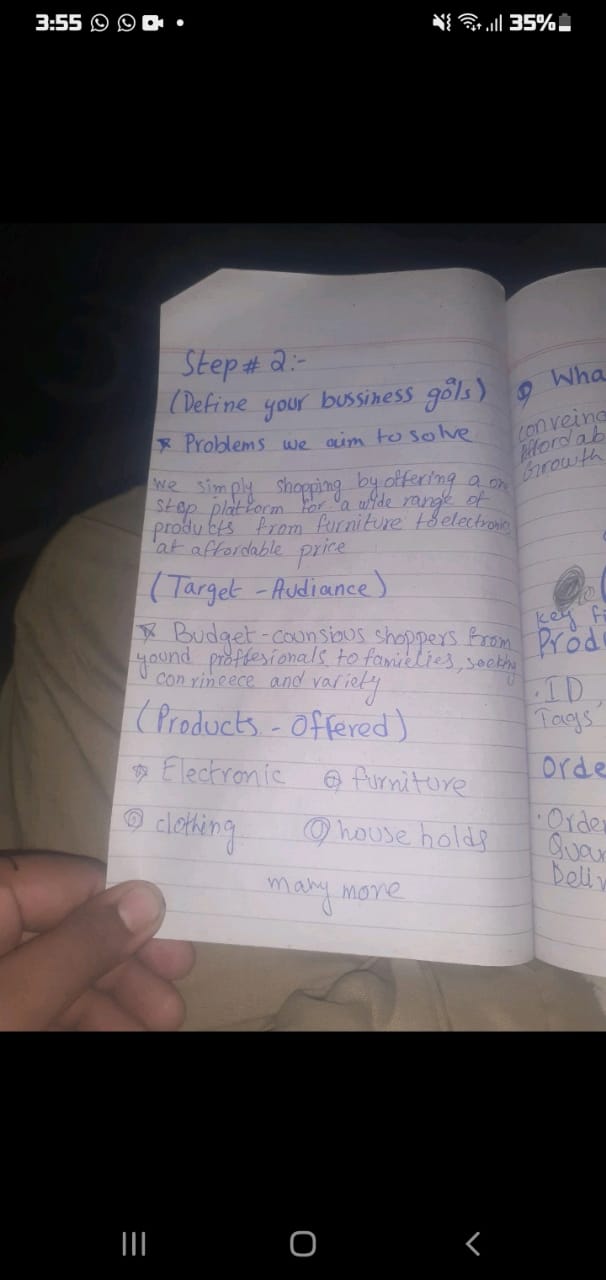 3:55
35%
Step # 2:-
(Define your bussiness gols)
Problems we aim to solve
we simply shopping by offering a on
stop platform for a wide range of
products from furniture to electronic
at affordable price
(Target - Audiance)
Budget - counsious shoppers from
yound proffesionals to famielies, seekhg
convineece and variety
(Products - Offered)
Electronic furniture
clothing house holds
many more
Wha
conveinc
Affordab
Growth
key f
Produ
. ID
Tags
Orde
. Order
Quan
Deliv